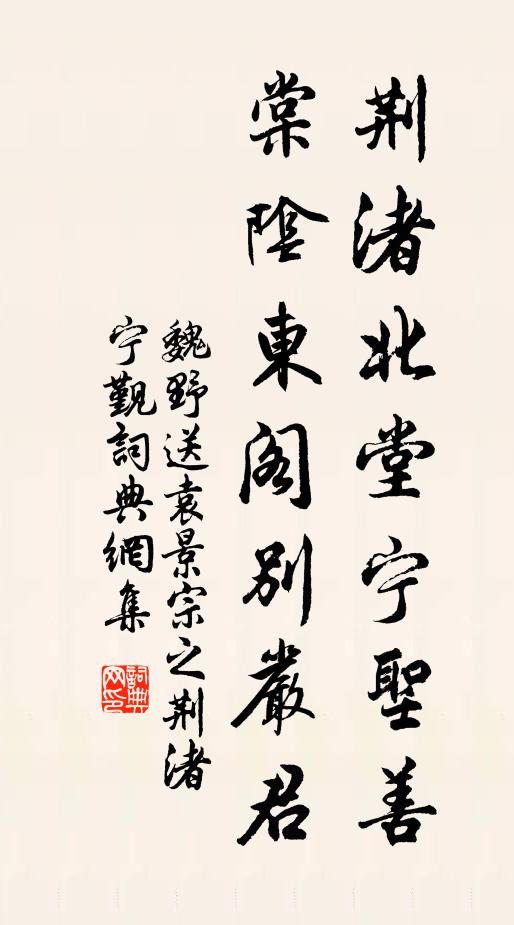 荆渚北堂宁聖善
棠陰東阁別嚴君
魏野送袁景宗之荆渚
宁觐詞典網集
詞典网印